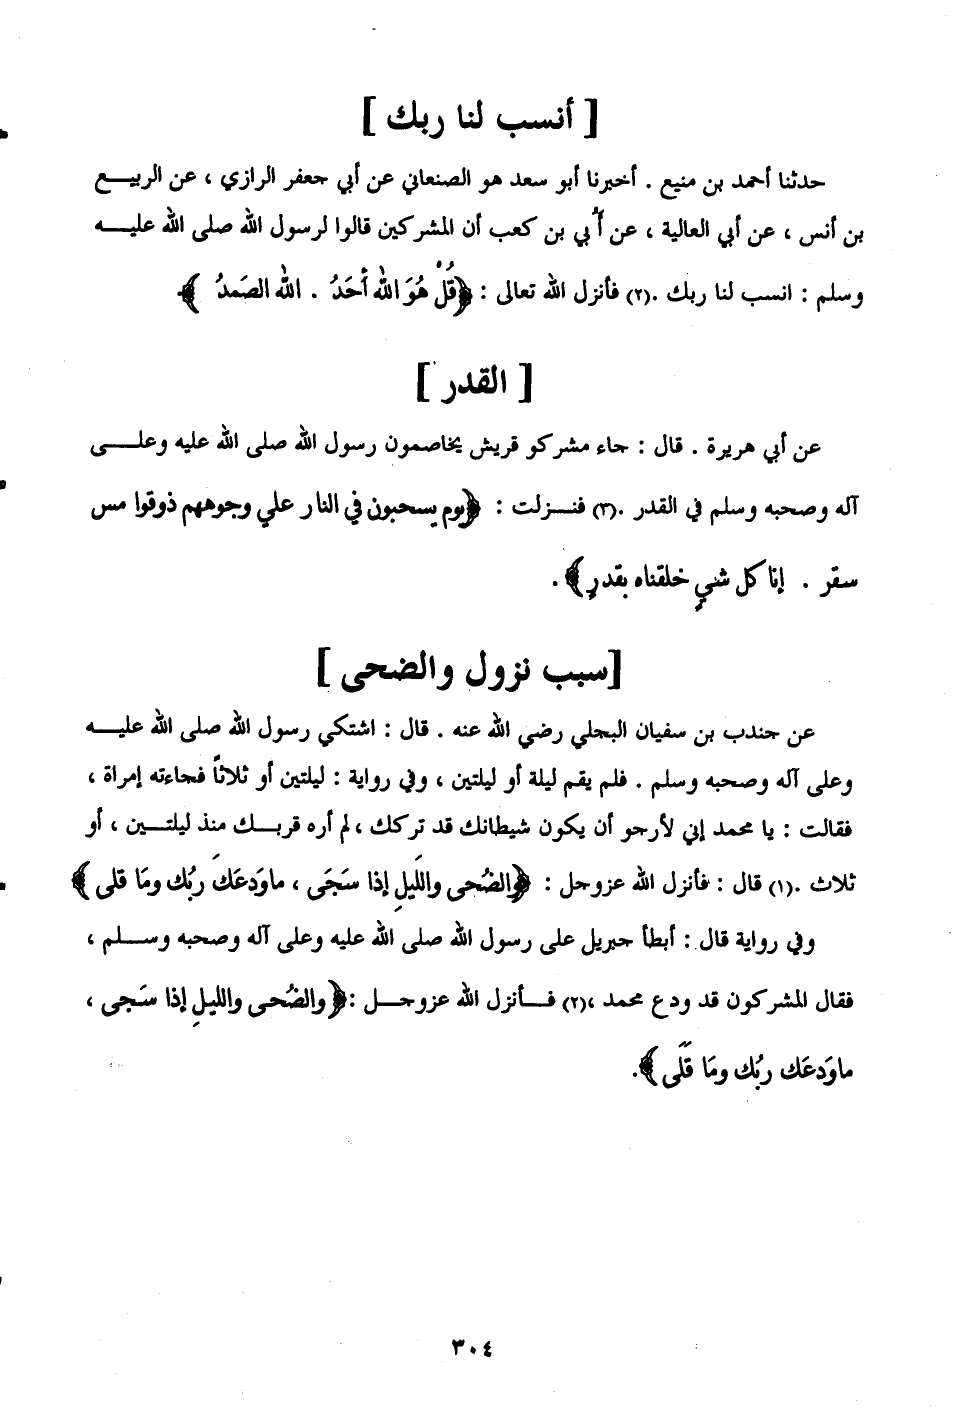 [ أنسب لنا ربك ]
حدثنا أحمد بن منيع . أخبرنا أبو سعد هو الصنعاني عن أبي جعفر الرازي ، عن الربيــع
بن أنس ، عن أبي العالية ، عن أُبي بن كعب أن المشركين قالوا لرسول الله صلى الله عليــه
وسلم : انسب لنا ربك .(٢) فأنزل الله تعالى : ﴿قُلْ هُوَ اللهُ أَحَدُ . اللهُ الصَمدُ ﴾
[ القدر ]
عن أبي هريرة . قال : جاء مشركو قريش يخاصمون رسول الله صلى الله عليه وعلــى
آله وصحبه وسلم في القدر .(٣) فنــزلت : ﴿يوم يسحبون في النار علي وجوههم ذوقوا مس
سقر . إنا كل شيٍ خلقناه بقدرٍ﴾ .
[سبب نزول والضحى ]
عن جندب بن سفيان البجلي رضي الله عنه . قال : اشتكي رسول الله صلى الله عليــه
وعلى آله وصحبه وسلم . فلم يقم ليلة أو ليلتين ، وفي رواية : ليلتين أو ثلاثاً فجاءته إمراة ،
فقالت : يا محمد إني لأرجو أن يكون شيطانك قد تركك ، لم أره قربــك منذ ليلتــين ، أو
ثلاث .(١) قال : فأنزل الله عزوجل : ﴿والضُحى والليلِ إذا سَجَى ، ماوَدعَكَ ربُك ومَا قلى ﴾
وفي رواية قال : أبطأ جبريل على رسول الله صلى الله عليه وعلى آله وصحبه وســلم ،
فقال المشركون قد ودع محمد ،(٢) فــأنزل الله عزوجــل :﴿والضُحى والليلِ إذا سَجى ،
ماوَدعَك ربُك ومَا قَلَى ﴾.
٣٠٤